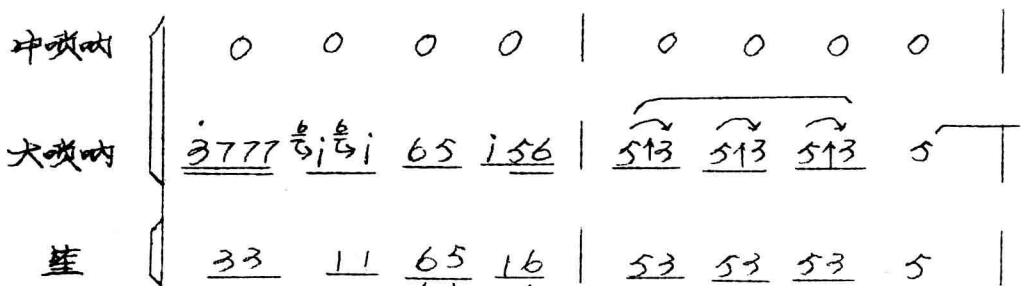 中唢呐 0 0 0 0 | 0 0 0 0 |
大唢呐 3̇777 i i 65 i56 | 5↑3 5↑3 5↑3 5 |
笙 33 11 65 16 | 53 53 53 5 |